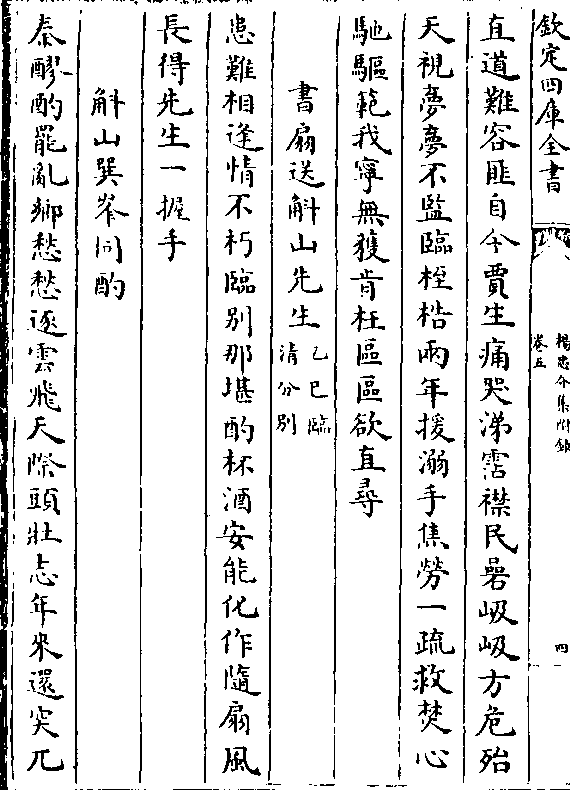 欽定四庫全書
楊忠介集附錄
卷五
四
直道難容匪自今賈生痛哭涕霑襟民碞岌岌方危殆
天視夢夢不監臨桎梏兩年援溺手焦勞一疏救焚心
馳驅範我寧無獲肯枉區區欲直尋
書扇送斛山先生乙巳臨清分別
患難相逢情不朽臨別那堪酌杯酒安能化作隨扇風
長得先生一握手
斛山巽峯同酌
泰醪酌罷亂鄉愁愁逐雲飛天際頭壯志年來還突兀